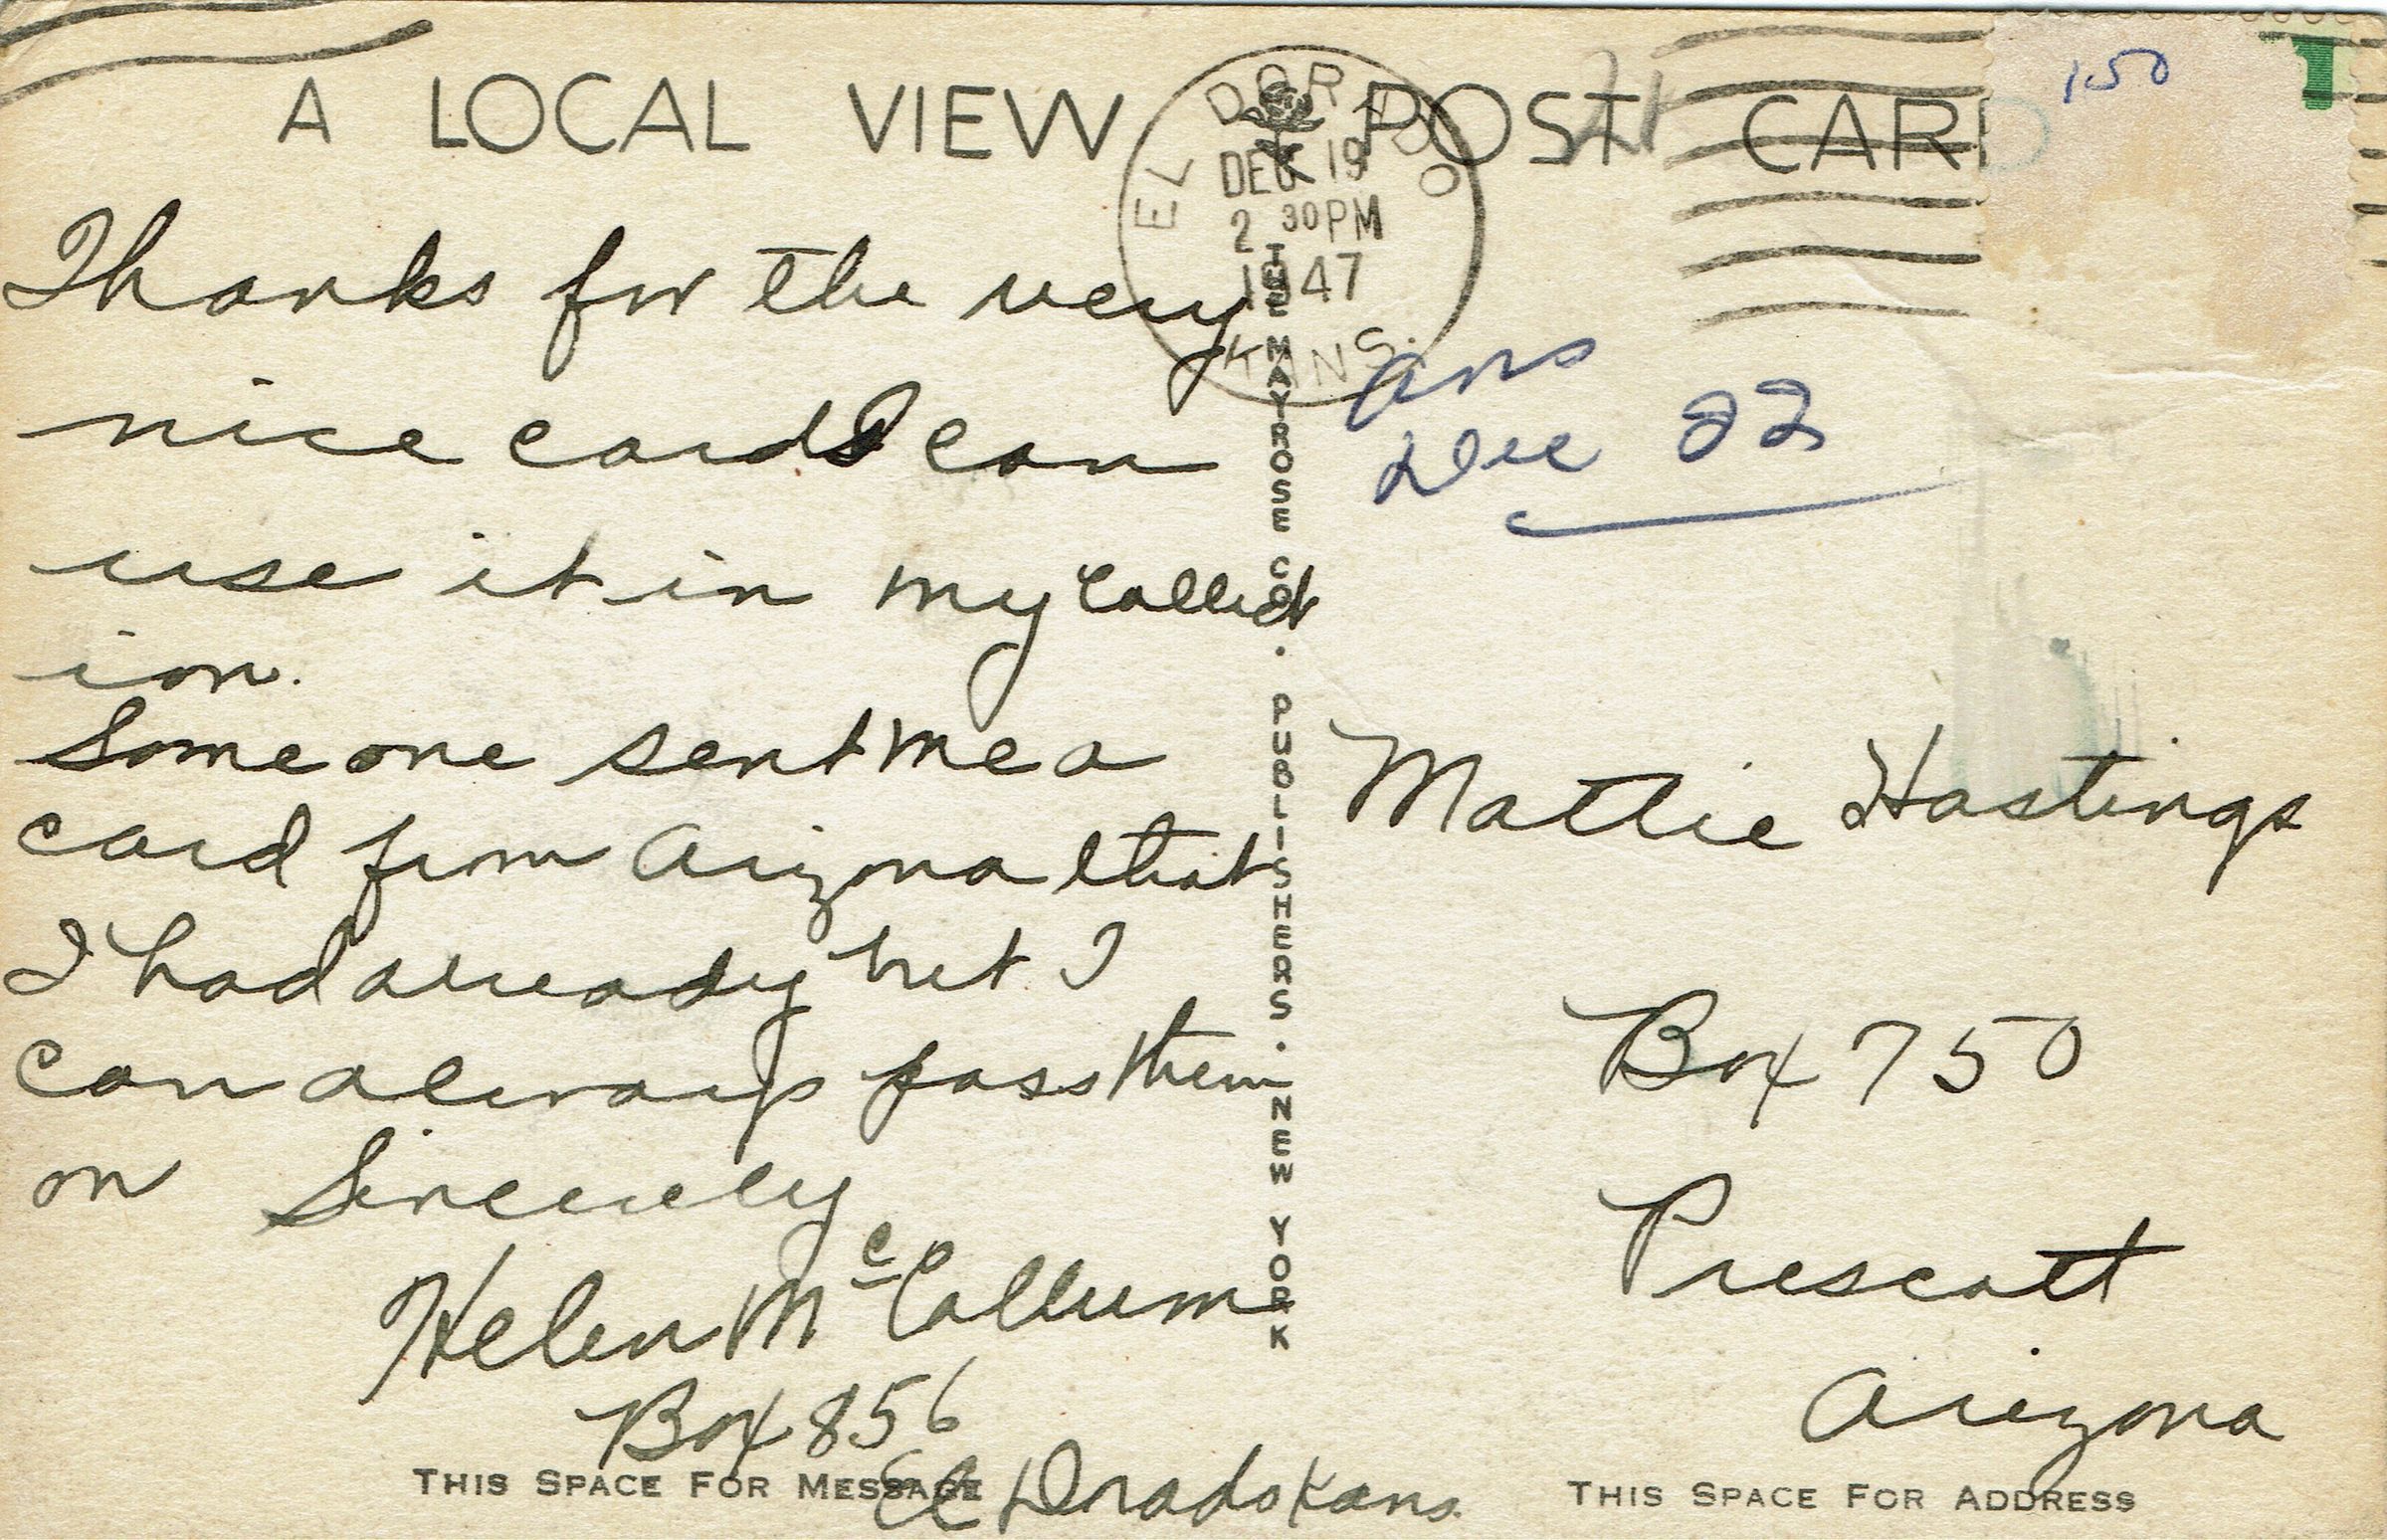 A LOCAL VIEW POST CARD
21
150
EL DORADO
DEC 19
2 30 PM
1947
KANS.
Thanks for the very
nice card I can
use it in my collect
ion.
Some one sent me a
card from Arizona that
I had already but I
can always pass them
on Sincerely
Helen McCallum
Box 856
El Dorado Kans.
THIS SPACE FOR MESSAGE
THE MAYROSE CO. PUBLISHERS. NEW YORK
ans
Dec 22
Mattie Hastings
Box 750
Prescott
Arizona
THIS SPACE FOR ADDRESS